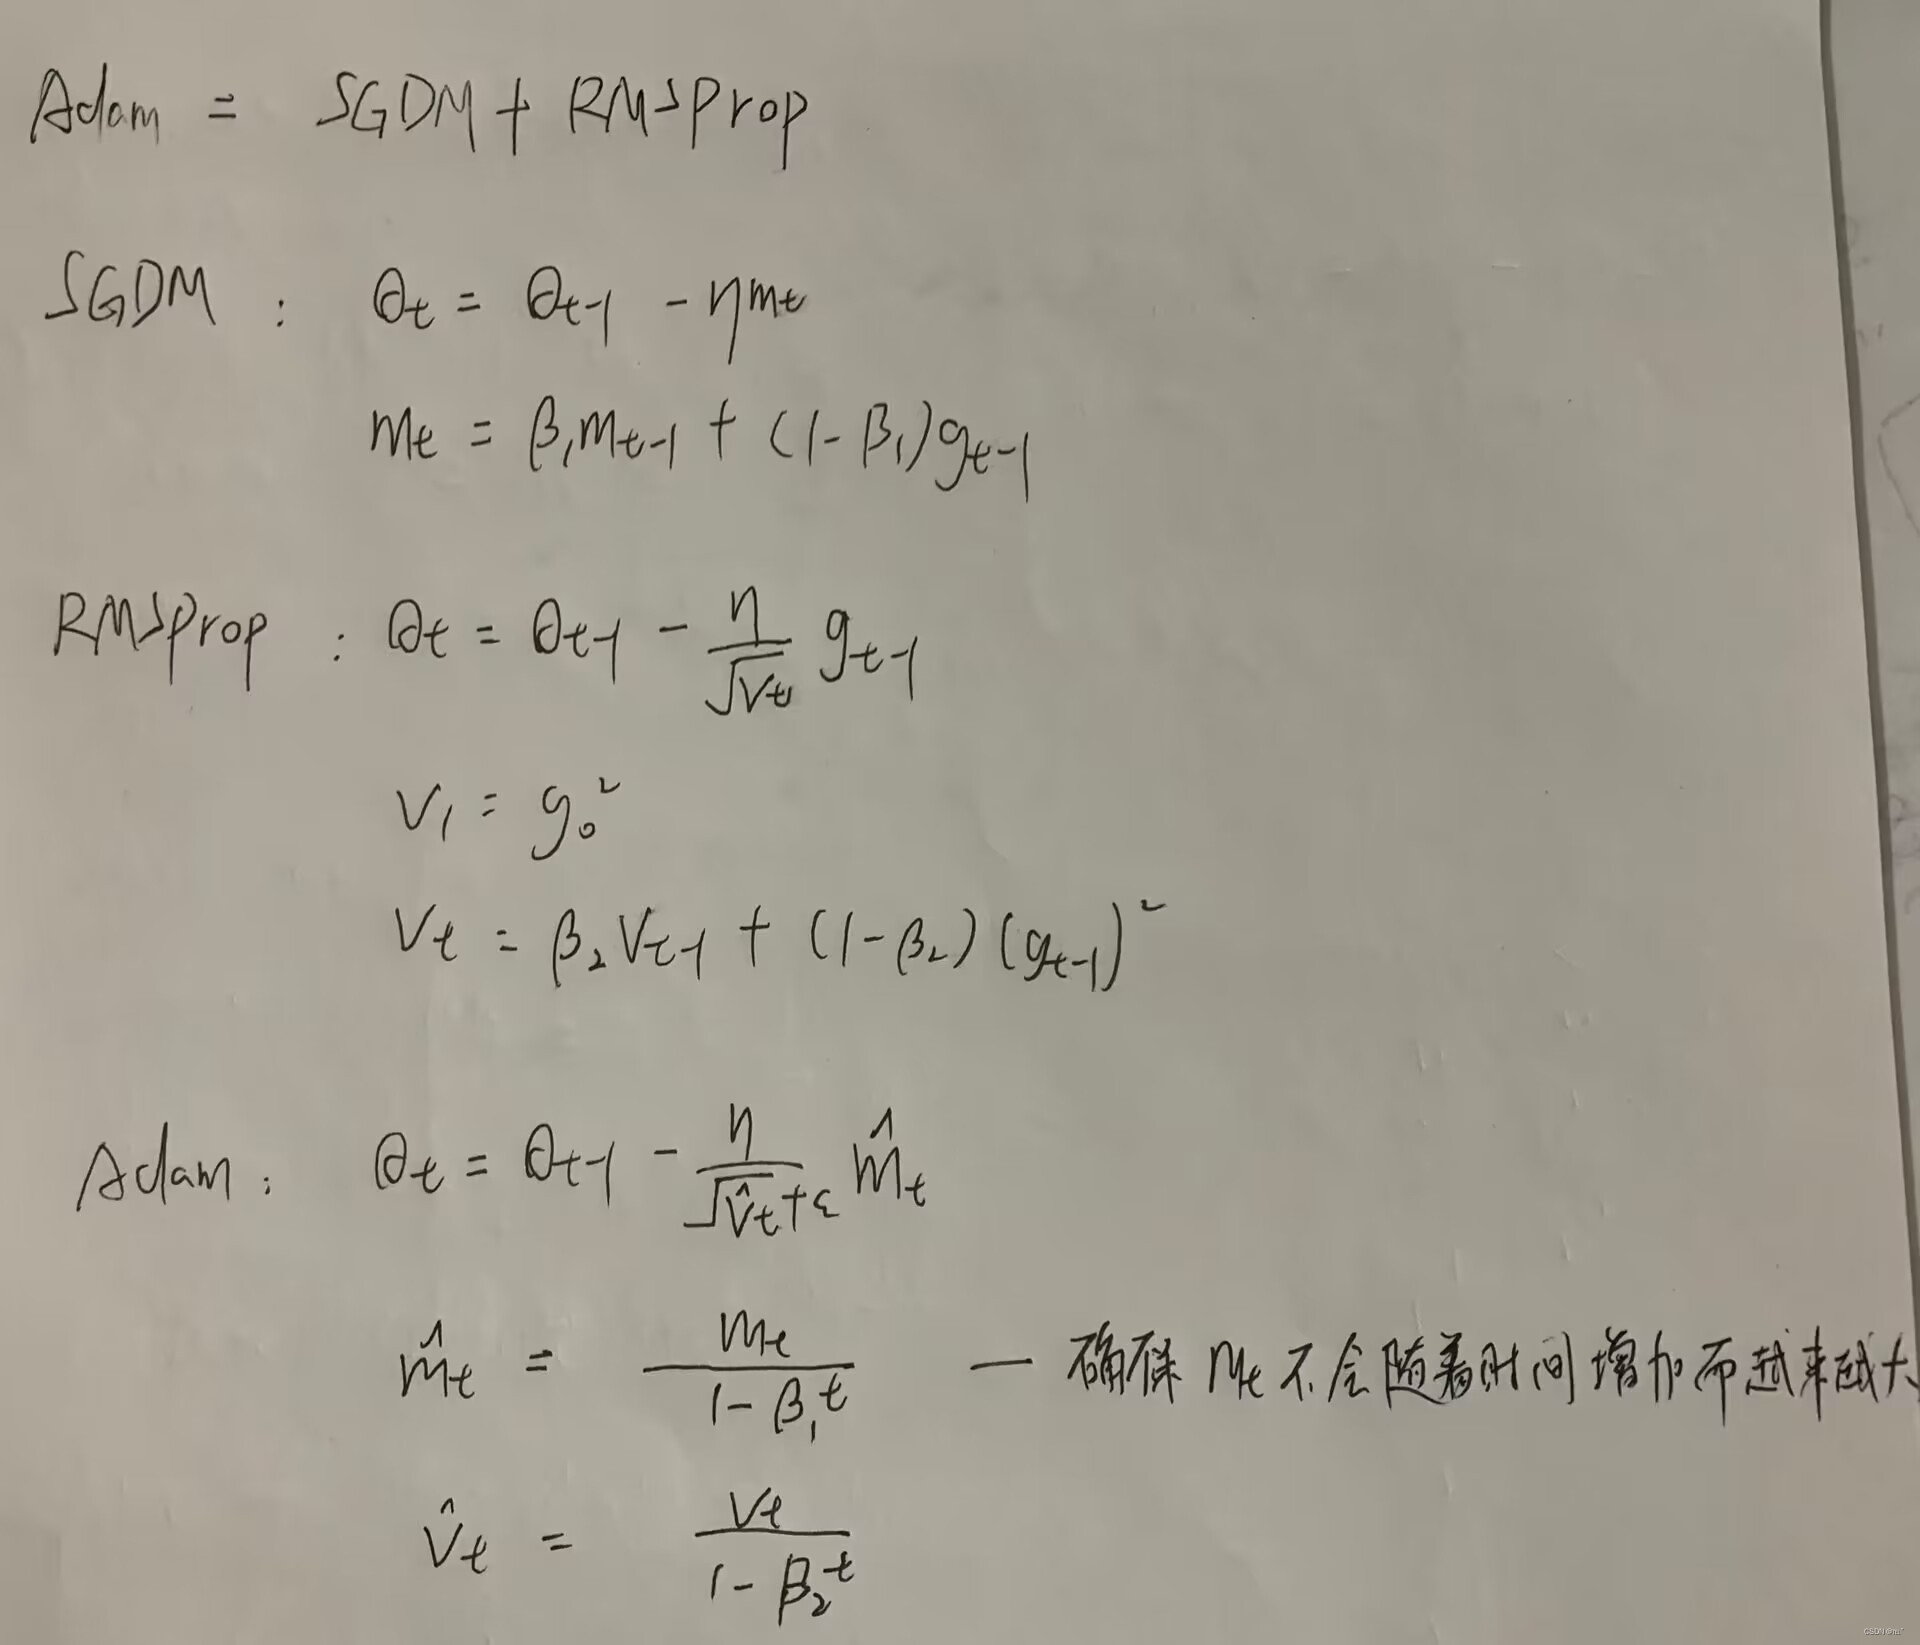 Adam = SGDM + RMSProp
SGDM : θt = θt-1 - ηmt
mt = β1mt-1 + (1-β1)gt-1
RMSProp : θt = θt-1 - η/√vt gt-1
v1 = g0²
vt = β2vt-1 + (1-β2)(gt-1)²
Adam: θt = θt-1 - η/√v̂t+ε m̂t
m̂t = mt/1-β1^t — 确保 mt 不会随着时间增加而越来越大
v̂t = vt/1-β2^t